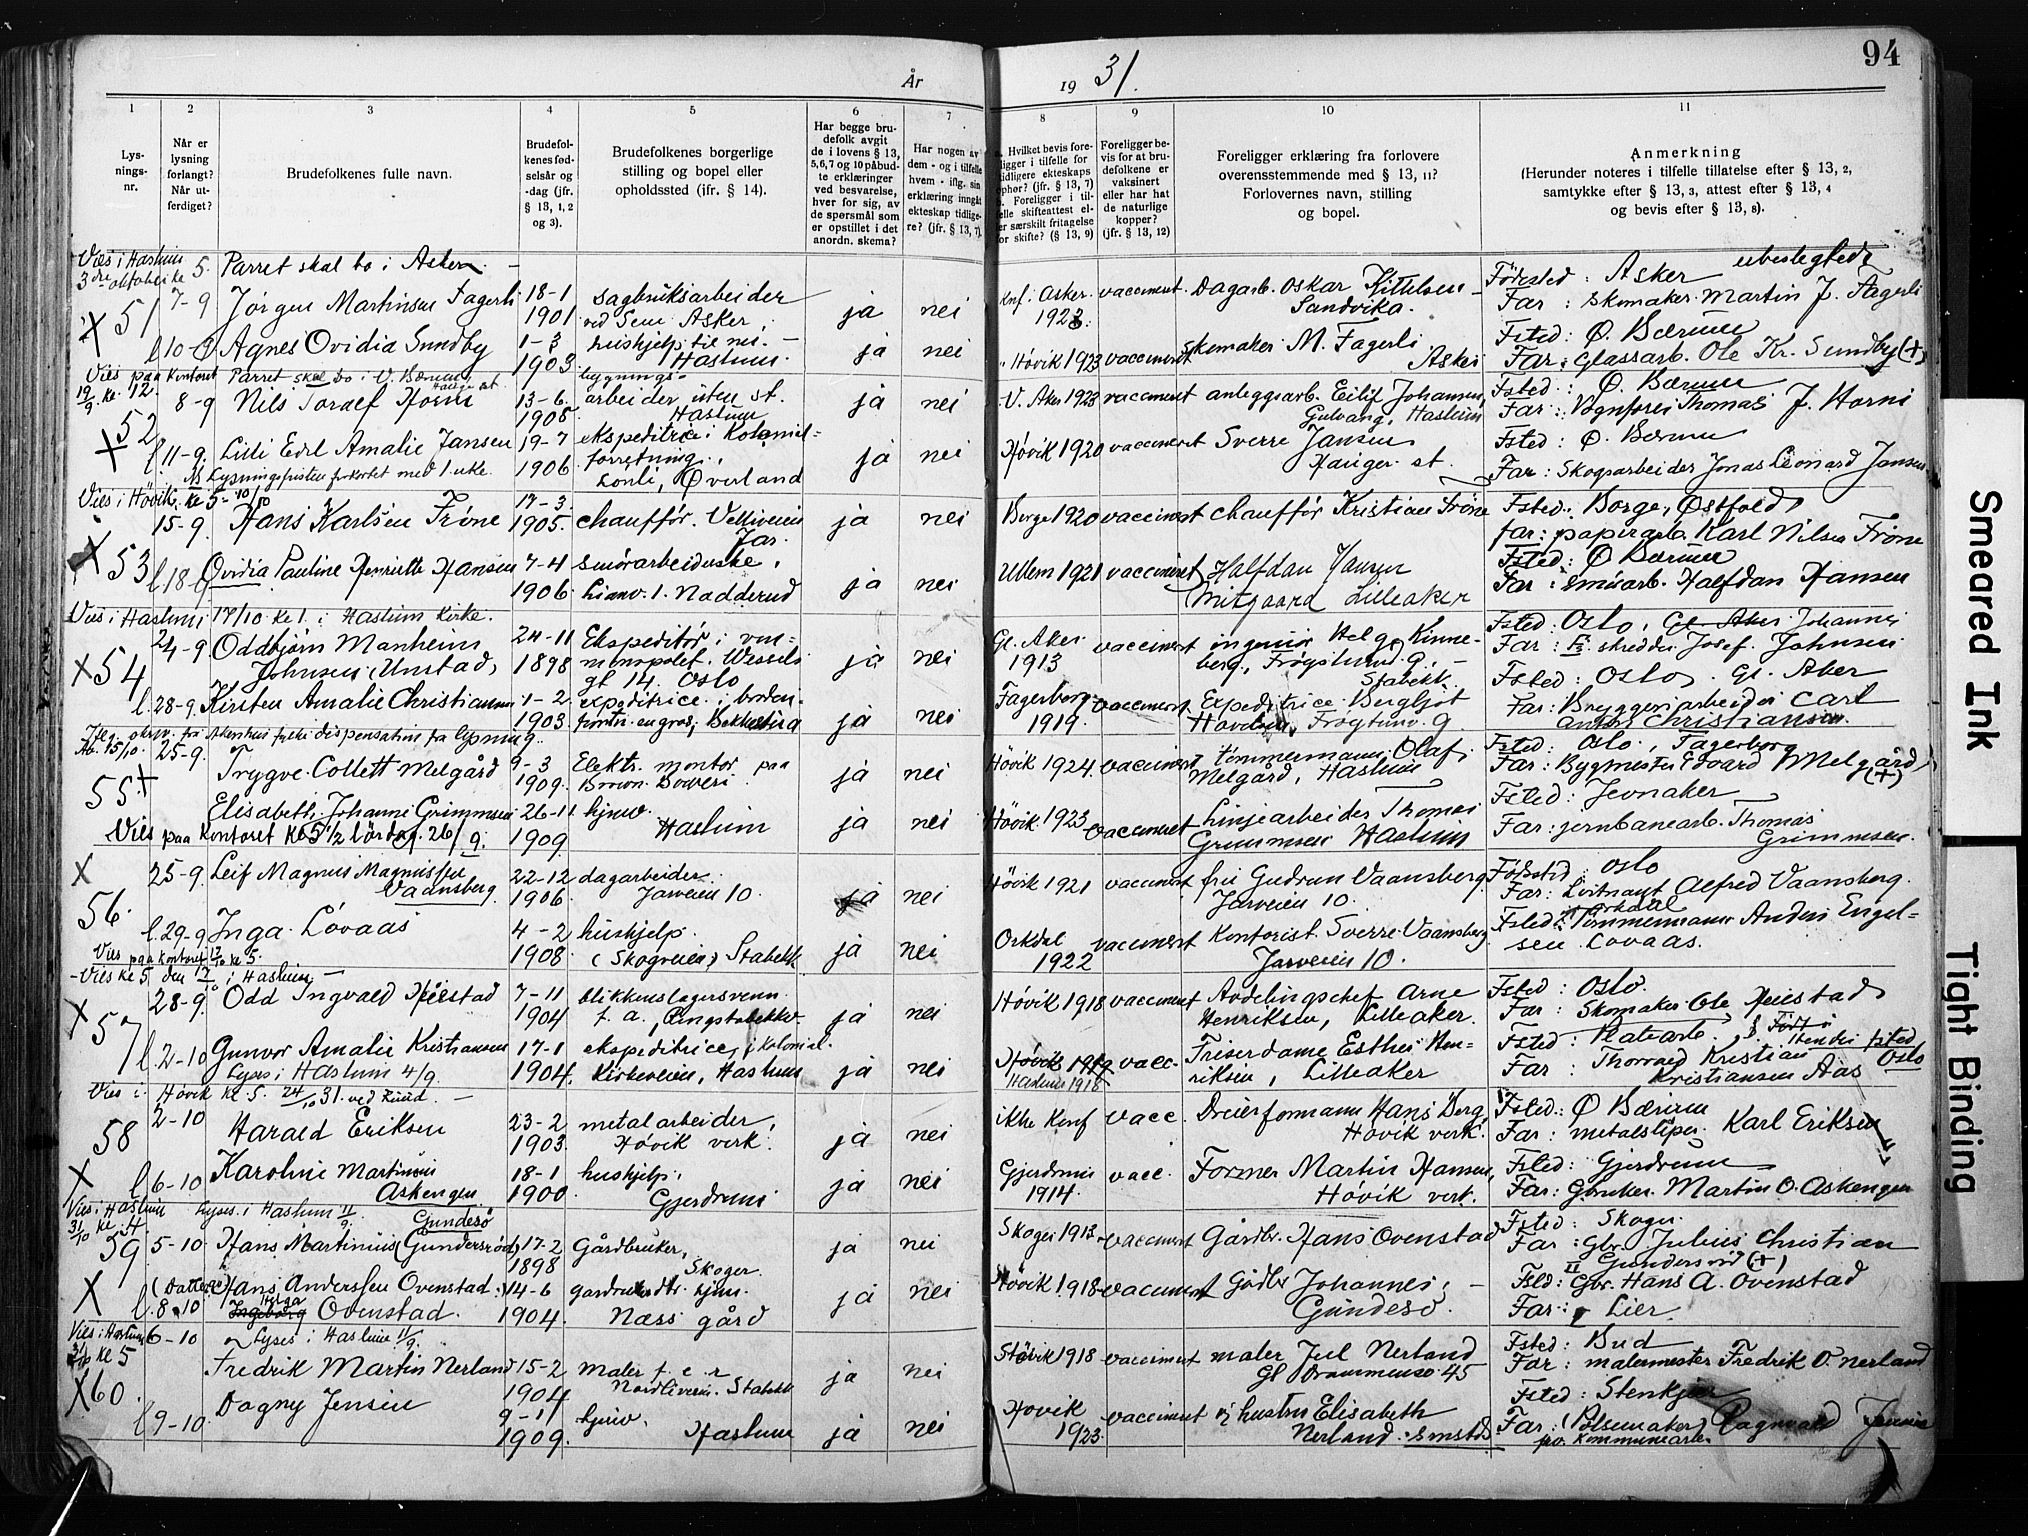 94
År
19 31.
1
2
3
4
5
6
7
8
9
10
11
Lys-
nings-
nr.
Når er
lysning
forlangt?
Når ut-
ferdiget?
Brudefolkenes fulle navn.
Brudefol-
kenes fød-
selsår og
-dag (jfr.
§ 13, 1, 2
og 3).
Brudefolkenes borgerlige
stilling og bopel eller
opholdssted (jfr. § 14).
Har begge bru-
defolk avgit
de i lovens § 13,
5, 6, 7 og 10 påbud-
te erklæringer
ved besvarelse,
hver for sig, av
de spørsmål som
er opstillet i det
anordn. skema?
Har nogen av
dem - og i tilfelle
hvem - iflg. sin
erklæring inngåt
ekteskap tidlige-
re? (jfr. § 13, 7).
Hvilket bevis fore-
ligger i tilfelle for
tidligere ekteskaps
ophør? (jfr. § 13, 7)
Foreligger i til-
felle skifteattest el-
ler særskilt fritagelse
for skifte? (§ 13, 9)
Foreligger be-
vis for at bru-
defolkene er
vaksinert
eller har hat
de naturlige
kopper?
(jfr. § 13, 12)
Foreligger erklæring fra forlovere
overensstemmende med § 13, 11?
Forlovernes navn, stilling
og bopel.
Anmerkning
(Herunder noteres i tilfelle tillatelse efter § 13, 2,
samtykke efter § 13, 3, attest efter § 13, 4
og bevis efter § 13, 8).
Vies i Haslum
3dre oktober kl 5. Parret skal bo i Asker. -
X 51 7-9 Jørgen Martinsen Fagerli 18-1 1901 sagbruksarbeider
ved Sem Asker, ja nei
Knf. Asker 1923. vaccinert. Dagarb. Oskar Kittelsen -
Sandvika.
Fødested: Asker ubeslegtede
Far: skomaker Martin J. Fagerli
l 10-9 Agnes Ovidia Sundby 1-3 1903 hushjelp
Haslum. ja nei
Høvik 1923 vaccinert skomaker M. Fagerli
Asker
Fsted: Ø. Bærum
Far: Glassarb. Ole Kr. Sundby (+)
Vies paa kontoret Parret skal bo i V. Bærum
19/9 kl. 12.
52 X 8-9 Nils Toralf Horni 13-6 1905 bygnings-
arbeider
Haslum ja nei
V. Aker 1923 vaccinert anleggsarb. Eilif Johansen,
Gulvang, Haslum
Fsted: Ø. Bærum
Far: Vognfører Thomas J. Horni
l 11-9. Lilli Edel Amalie Jansen 19-7 1906 ekspeditrice i Kolonial-
forretning,
Lonli, Øverland ja nei
Høvik 1920 vaccineret Sverre Jansen
Hauger st.
Fsted: Ø. Bærum
Far: Skogsarbeider Jonas Leonard Jansen
Ns Lysningsfristen forkortet med 1 uke.
Vies i Høvik kl 5- 10/10
X 53 15-9 Hans Karlsen Frøne 17-3 1905. chauffør. Velliveien
Jar. ja nei
Borge 1920 vaccinert chauffør Kristian Frøne
Fsted: Borge, Østfold
far: papirarb. Karl Nilsen Frøne
l 18-9 Ovidia Pauline Henriette Hansen 7-4 1906 smørarbeiderske,
Nadderud ja nei
Ullern 1921 vaccineret Halfdan Hansen
Lilleaker
Fsted: Ø Bærum
Far: smørarb. Halfdan Hansen
Vies i Haslum 17/10 kl 1 i Haslum Kirke.
X 54 24-9 Oddbjørn Manheim
Johnsen, Unstad, 24-11 1898 Ekspeditør i vin-
monopolet. Wessels
gt 14. Oslo ja nei
Gl. Aker 1913 vaccinert ingeniør Helge Kinne-
berg,
Stabekk.
Fsted: Oslo, Gl. Aker Johannes
Far: skredder Josef Johnsen
l. 28-9. Kirsten Amalie Christiansen 1-2 1903 expeditrice i
Bekkestua ja nei
Fagerborg 1919. vaccinert Expeditrice Bergljot
Fsted: Oslo, Gl. Aker
Far: Bryggeriarbeider Carl
Anton Christiansen.
Ifølg. skriv. fra Akershus fylke dispensation fra lysning.
55 X 25-9. Trygve Collett Melgård 9-3 1909. Elektr. montør paa
Brown Boveri ja nei
Høvik 1924. vaccinert tømmermann Olaf
Melgård, Haslum
Fsted: Oslo, Fagerborg
Far: Bygmester Edvard Melgård (+)
Elisabeth Johanne Grimmsen 26-11 1909 hjmv.
Haslum ja nei
Høvik 1923 vaccinert Linjearbeider Thomas
Grimmsen Haslum
Fsted: Jevnaker
Far: jernbanearb. Thomas
Grimmsen.
Vies paa kontoret kl 5 1/2 lördag. 26/9.
X 56. 25-9. Leif Magnus Magnussen
Vaansberg 22-12 1906. dagarbeider
Jarveien 10. ja nei
Høvik 1921 vaccinert fru Gudrun Vaansberg
Jarveien 10.
Fødested: Oslo
Far: Løitnant Alfred Vaansberg.
l. 29-9 Inga Lövaas 4-2 1908 hushjelp.
(Skogveien) Stabekk ja nei
Orkdal 1922 vaccinert Kontorist Sverre Vaansberg
Jarveien 10.
Fsted: Orkdal
Tømmermann Anders Engel-
sen Lovaas.
Vies paa kontoret 17/10 kl 5.
-Vies kl 5 den i Haslum -
X 57 28-9. Odd Ingvald Heiestad 7-11 1904 blikkenslagersvenn
f. a., Ringstabekkv. ja nei
Høvik 1918 vaccinert Avdelingschef Arne
Henriksen, Lilleaker.
Fsted: Oslo.
Far: Skomaker Ole Heiestad
l 2-10 Gunvor Amalie Kristiansen 17-1 1904. ekspeditrice, i kolonial.
Kirkeveien, Haslum ja nei
Høvik 1919 vacc.
Haslum 1918
Friserdame Esther Hen-
riksen, Lilleaker
Fsted: Platearb. Født i
Fsted Oslo
Far: Thorvald Kristian
Kristiansen Aas
Lyses i Haslum 4/9.
Vies i Høvik kl 5. 24/10 31. ved Ruud. -
58 X 2-10 Harald Eriksen 23-2 1903. metalarbeider,
Høvik verk. ja nei
ikke Konf vacc. Dreierformann Hans Berg,
Høvik verk.
Fsted: Ø Bærum
Far: metalstøper. Karl Eriksen
l 6-10 Karoline Martinius
Askengen 18-1 1900. hushjelp,
Gjerdrum ja nei
Gjerdrum 1914. vacc. Former Martin Hansen,
Høvik verk.
Fsted: Gjerdrum
Far: Gbruker. Martin O. Askengen
Vies i Haslum 31/10 kl. 4. Lyses i Haslum 11/9. Gundesö
59 X 5-10. Hans Martinius (Gundersrød) 17-2 1898 Gårdbruker,
Skoger. ja nei
Skoger 1913 vaccinert Gårdbr. Hans Ovenstad
Fsted: Skoger.
Far: Gbr. Julius Christian
Gundersrød (+)
(Datter av Hans Anderssen Ovenstad.) 14-6
l. 8-10 Ingeborg Helga Ovenstad. 1904. hjm.
Næss gård ja nei
Høvik 1918 vaccinert Gårdbr Johannes, -
Gundesö.
Fsted: Gbr. Hans A. Ovenstad
Far: Lier.
Vies i Haslum 31/10 kl 5 Lyses i Haslum 11/9.
X 60. 6-10 Fredrik Martin Nerland 15-2 1904 maler
Nordliveien. Stabekk ja nei
Høvik 1918 vaccinert maler Jul Nerland
Gl Drammensv 45
Fsted: Bud
Far: malermester Fredrik O. Nerland
l 9-10 Dagny Jensen 9-11 1909. hjmv.
Haslum ja nei
Høvik 1923. vaccinert hustru Elisabeth
Nerland.
Fsted: Stenkjær
Far: (Pølsemaker) Ragnvald Jensen
kommunearb.
Smeared Ink
Tight Binding